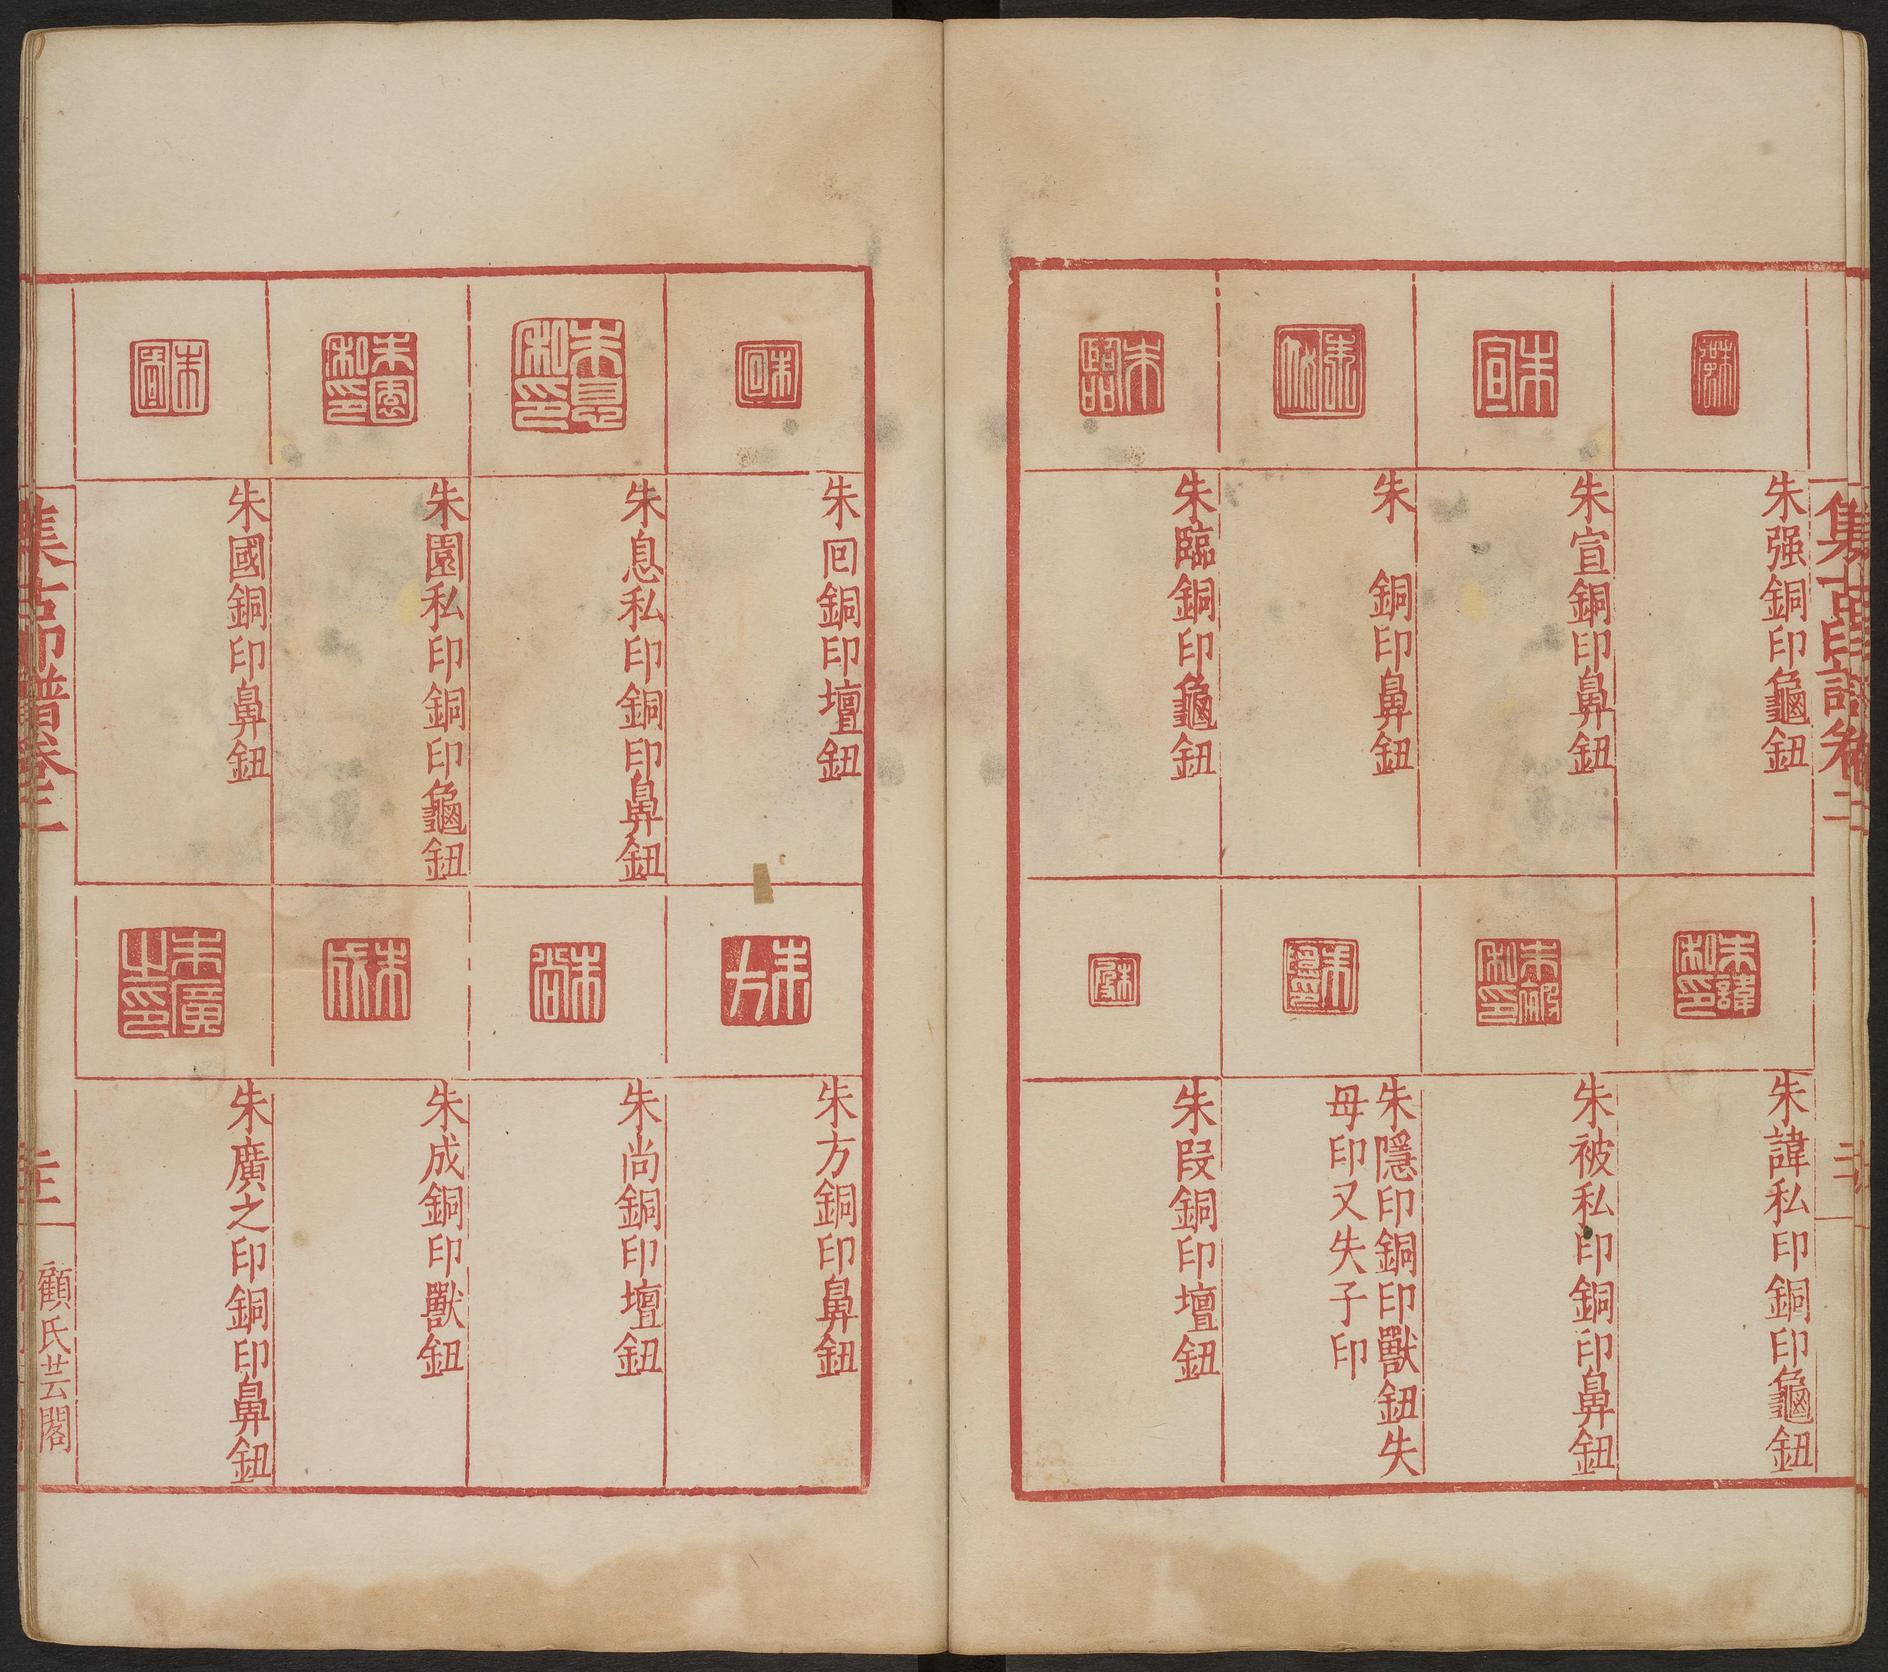 集古印譜卷二
朱强銅印龜鈕
朱宣銅印鼻鈕
朱 銅印鼻鈕
朱臨銅印龜鈕
朱諱私印銅印龜鈕
朱被私印銅印鼻鈕
朱隱印銅印獸鈕失
母印又失子印
朱段銅印壇鈕
朱回銅印壇鈕
朱息私印銅印鼻鈕
朱園私印銅印龜鈕
朱國銅印鼻鈕
朱方銅印鼻鈕
朱尚銅印壇鈕
朱成銅印獸鈕
朱廣之印銅印鼻鈕
集古印譜卷二
顧氏芸閣